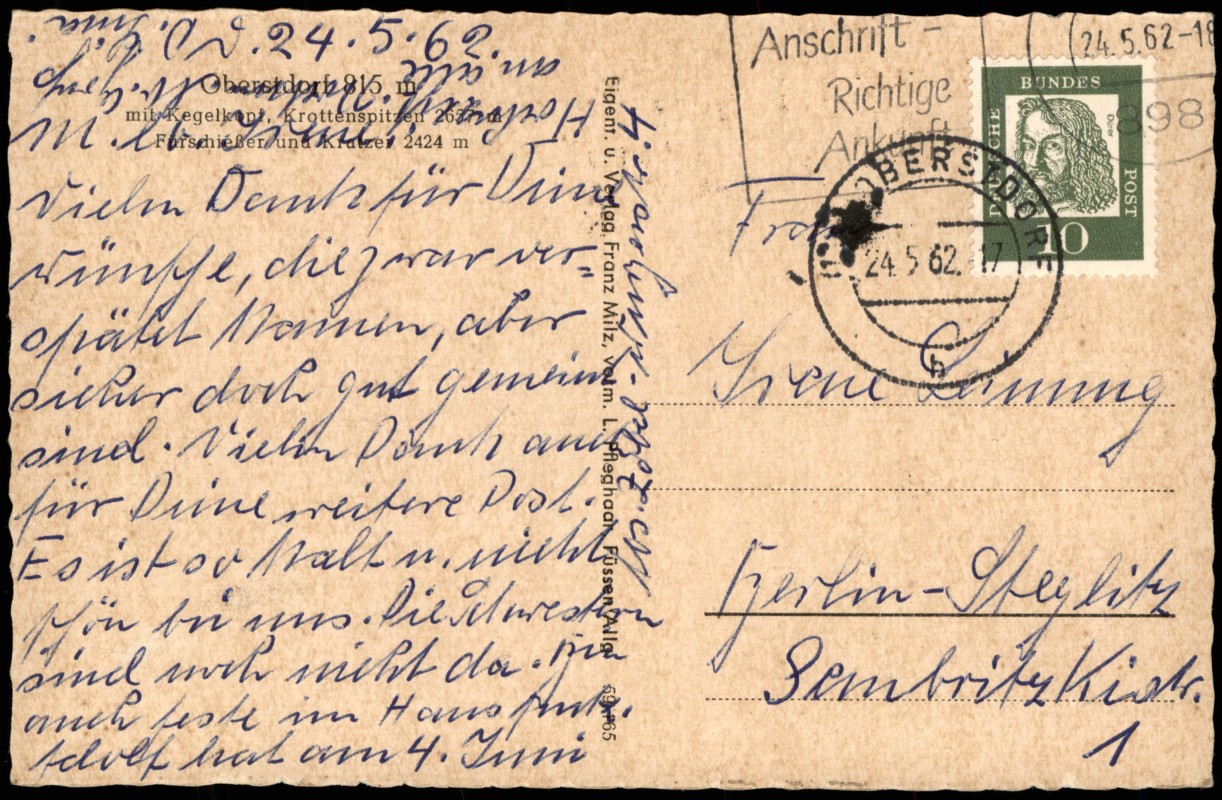 O., d. 24.5.62.
Oberstdorf 815 m
mit Kegelkopf, Krottenspitzen 2657 m
Fürschießer und Kratzer 2424 m
M. lb. Irene!
Vielen Dank für Deine
wünsche, die zwar ver-
spätet kamen, aber
sicher doch gut gemeint
sind. Vielen Dank auch
für Deine weitere Post.
Es ist so kalt u. nicht
schön bei uns. Die Schwestern
sind noch nicht da. Bin
auch feste im Haus
Adolf hat am 4. Juni
Eigent. u. Verlag Franz Milz, vorm. L. Pfleghaar, Füssen/Allg.
Anschrift -
Richtige
Ankunft
24.5.62-18
898
DEUTSCHE BUNDESPOST
Dürer
10
OBERSTDORF
24.5.62.-17
h
Frau
Irene
Berlin-Steglitz
Sembritzkistr.
1